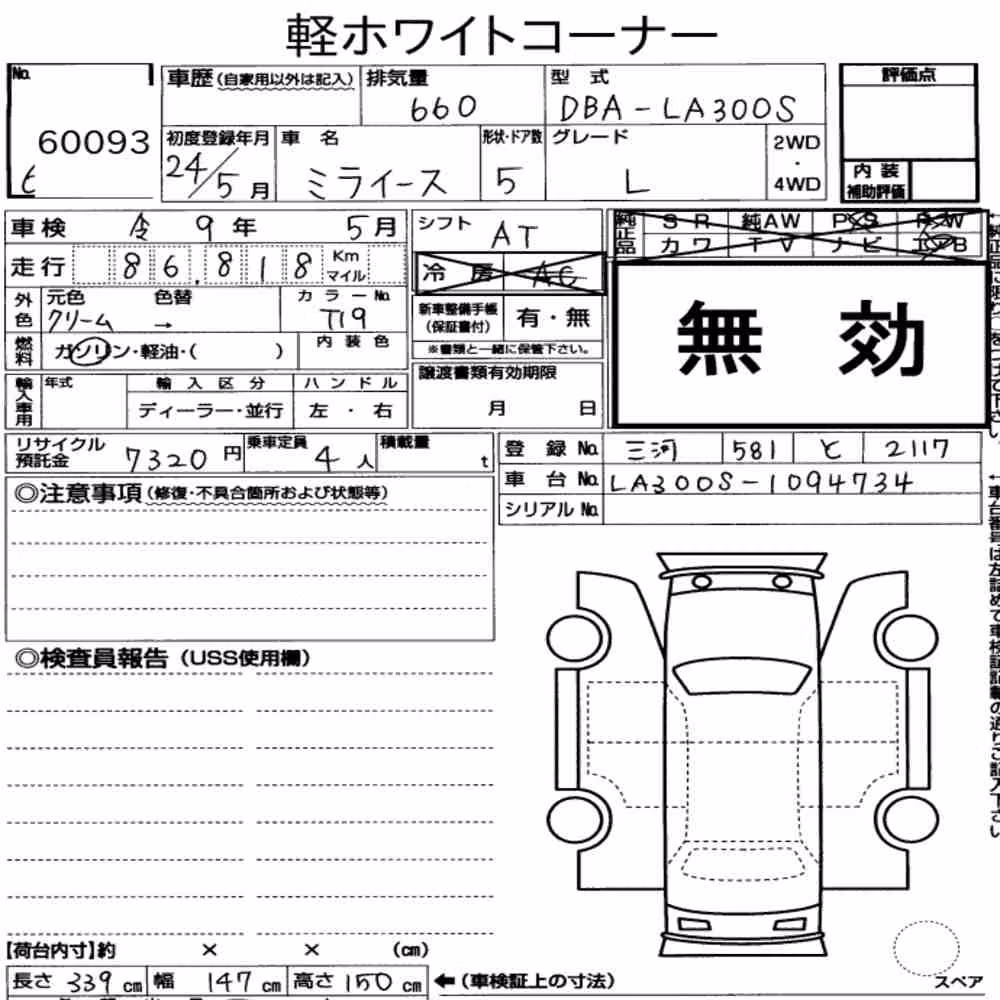 軽ホワイトコーナー
No. 60093
と
車歴(自家用以外は記入)
排気量 660
型式 DBA-LA300S
評価点
初度登録年月 24/5月
車名 ミライース
形状・ドア数 5
グレード L
2WD・4WD
内装補助評価
車検 令 9年 5月
シフト AT
純正品 SR 純AW PS PW
カワ TV ナビ エアB
走行 86,818 Km マイル
冷房 AC
無効
外色 元色 クリーム 色替 →
カラーNo. T19
新車整備手帳(保証書付) 有・無
※書類と一緒に保管下さい。
燃料 ガソリン・軽油・( )
内装色
輸入車用 年式
輸入区分 ディーラー・並行
ハンドル 左・右
譲渡書類有効期限
月 日
リサイクル預託金 7320円
乗車定員 4人
積載量 t
登録No. 三河 581 と 2117
車台No. LA300S-1094734
シリアルNo.
◎注意事項(修復・不具合箇所および状態等)
◎検査員報告(USS使用欄)
【荷台内寸】約 × × (cm)
長さ 339cm 幅 147cm 高さ 150cm
←(車検証上の寸法)
スペア
←車台番号は左詰めで車検証記載の通りご記入下さい